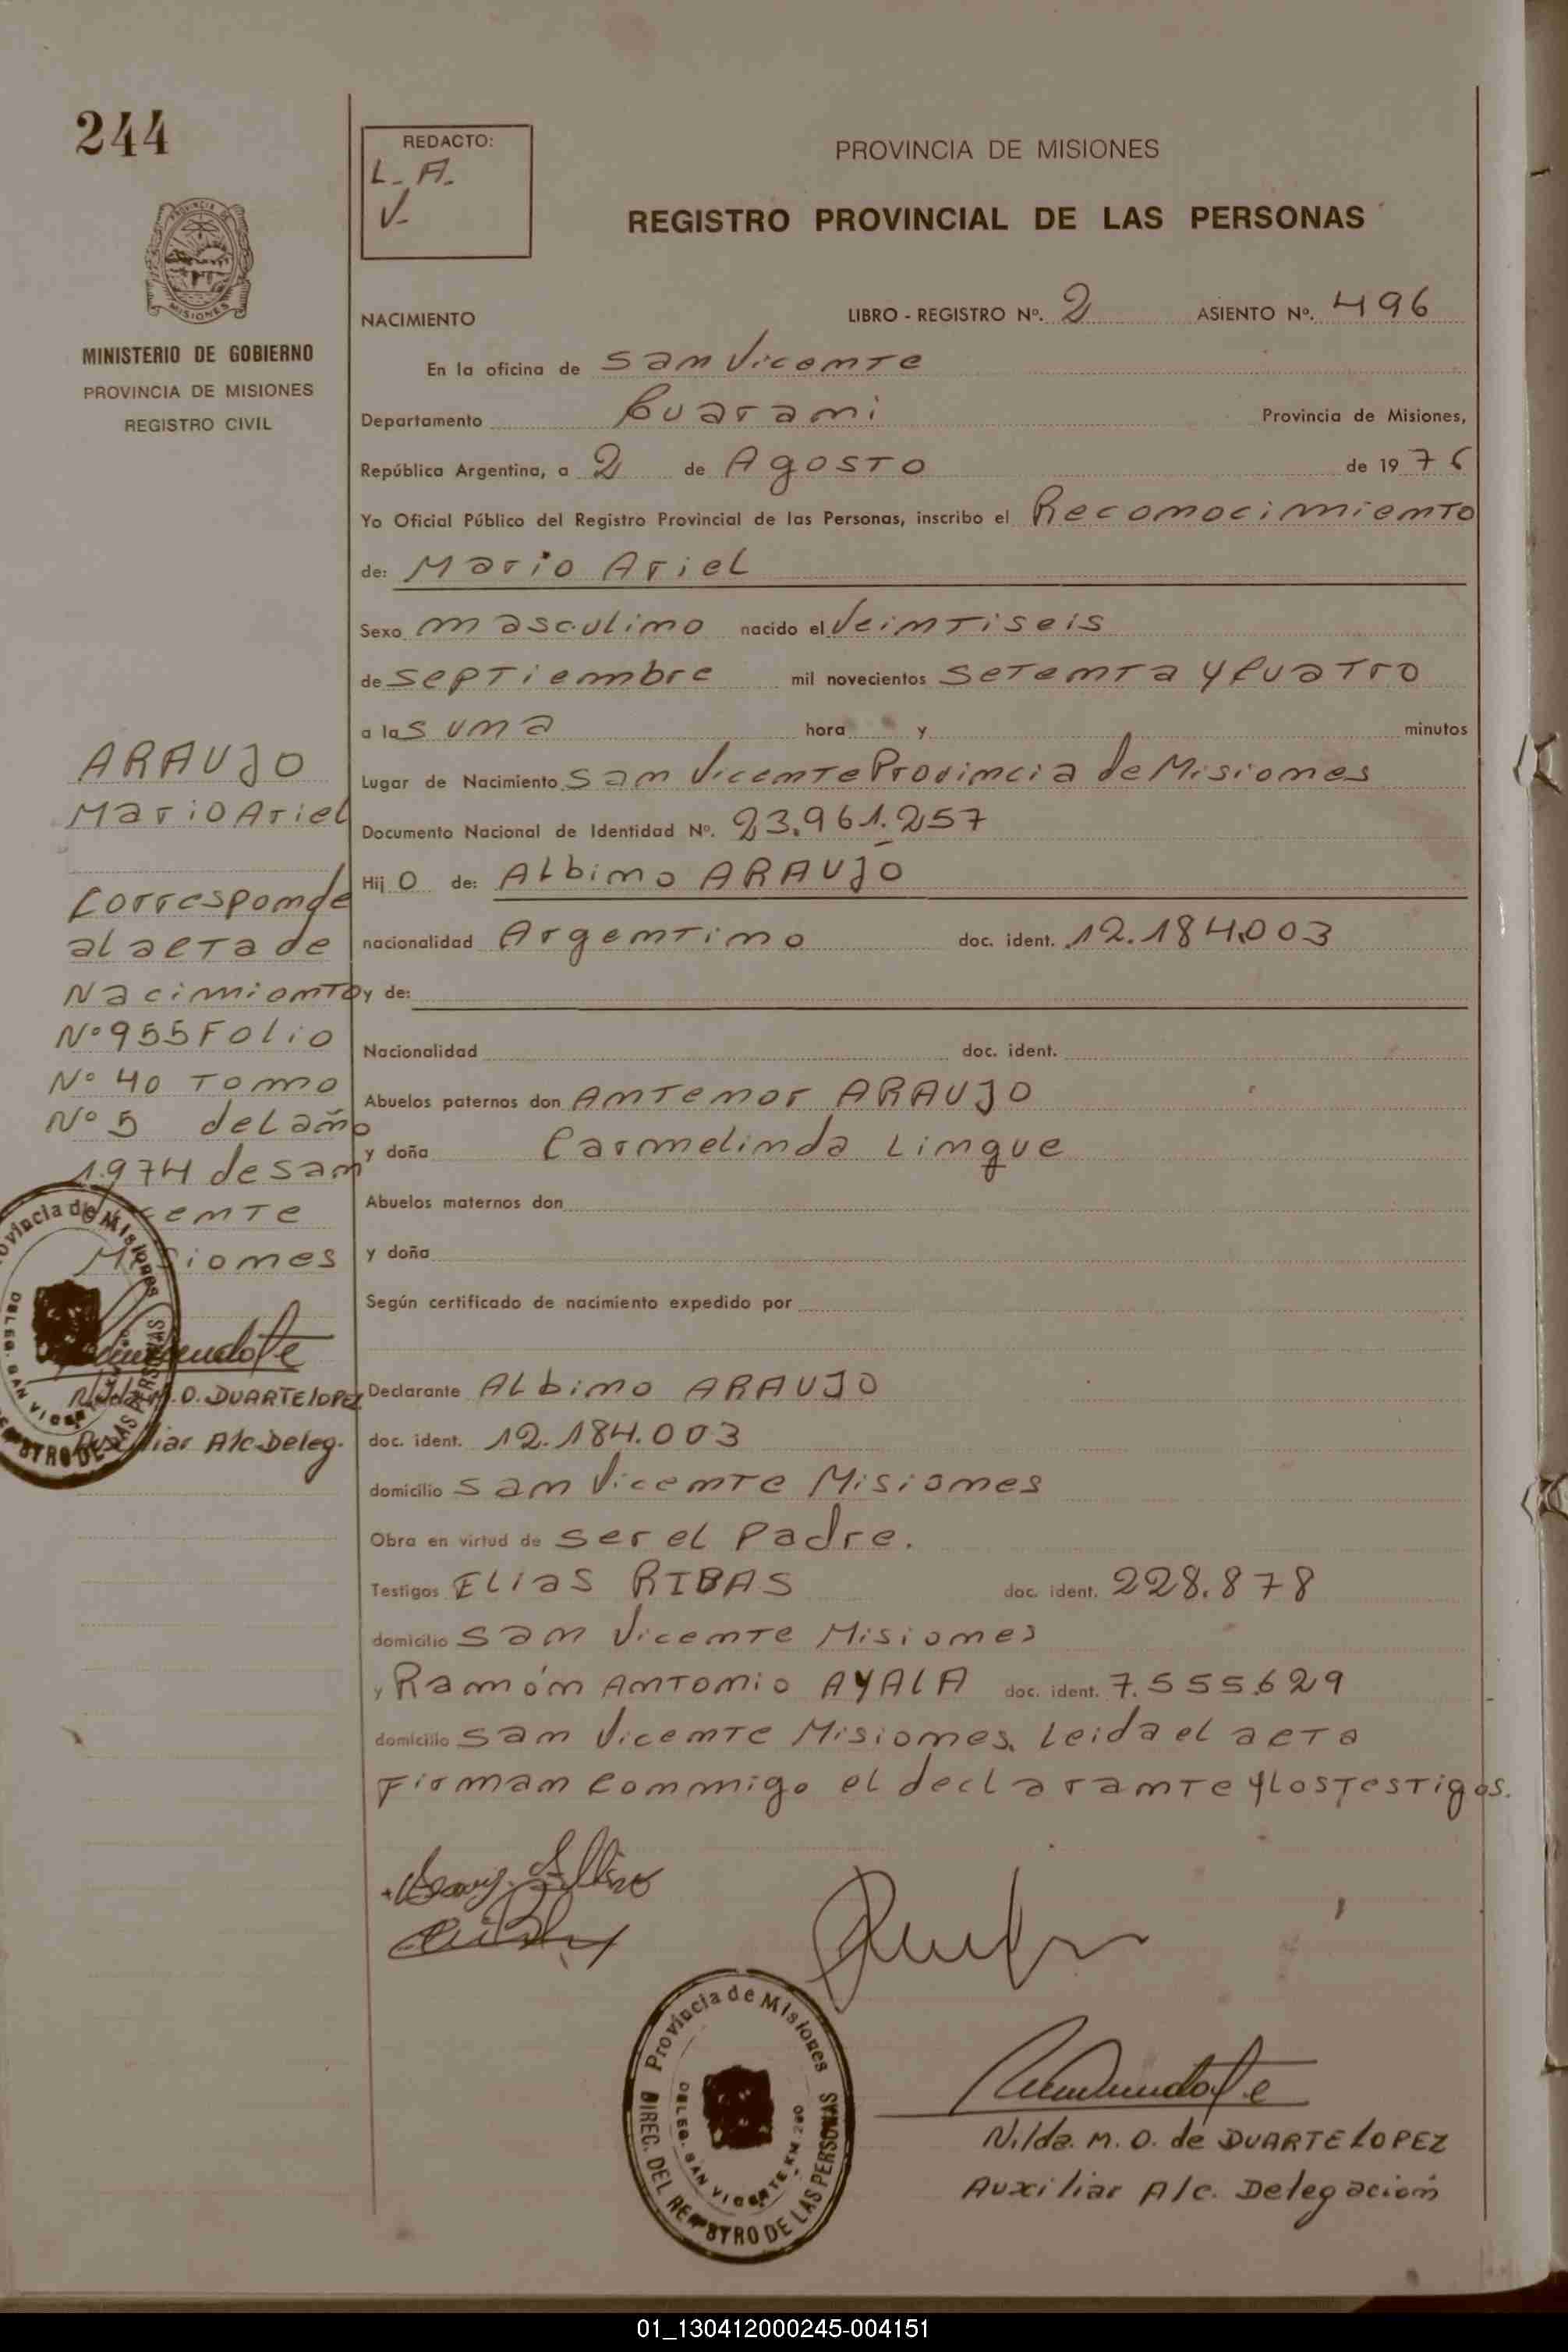 244
PROVINCIA DE MISIONES
MINISTERIO DE GOBIERNO
PROVINCIA DE MISIONES
REGISTRO CIVIL
ARAUJO
Mario Ariel
Corresponde
al acta de
Nacimiento
Nº 955 Folio
Nº 40 Tomo
Nº 5 del año
1.974 de San
Vicente
Misiones
Provincia de Misiones
DELEG. SAN VICENTE
Nilda M. O. DUARTE LOPEZ
Auxiliar A/c Deleg.
REDACTO:
L. A.
V.
PROVINCIA DE MISIONES
REGISTRO PROVINCIAL DE LAS PERSONAS
NACIMIENTO LIBRO - REGISTRO Nº. 2 ASIENTO Nº. 496
En la oficina de San Vicente
Departamento Guarani Provincia de Misiones,
República Argentina, a 2 de Agosto de 1976
Yo Oficial Público del Registro Provincial de las Personas, inscribo el Reconocimiento
de: Mario Ariel
Sexo masculino nacido el Veintiseis
de septiembre mil novecientos setenta y Cuatro
a las una hora y minutos
Lugar de Nacimiento San Vicente Provincia de Misiones
Documento Nacional de Identidad Nº. 23.961.257
Hijo de: Albino ARAUJO
nacionalidad Argentino doc. ident. 12.184.003
y de:
Nacionalidad doc. ident.
Abuelos paternos don Antenor ARAUJO
y doña Carmelinda Lingue
Abuelos maternos don
y doña
Según certificado de nacimiento expedido por
Declarante Albino ARAUJO
doc. ident. 12.184.003
domicilio San Vicente Misiones
Obra en virtud de ser el Padre.
Testigos ELias RIBAS doc. ident. 228.878
domicilio San Vicente Misiones
y Ramón Antonio AYALA doc. ident. 7.555.629
domicilio San Vicente Misiones. Leida el acta
Firman conmigo el declarante y los testigos.
Provincia de Misiones
DELEG. SAN VICENTE KM 280
DIREC. DEL REGISTRO DE LAS PERSONAS
Nilda. M. O. de DUARTE LOPEZ
Auxiliar A/c. Delegación
01_130412000245-004151